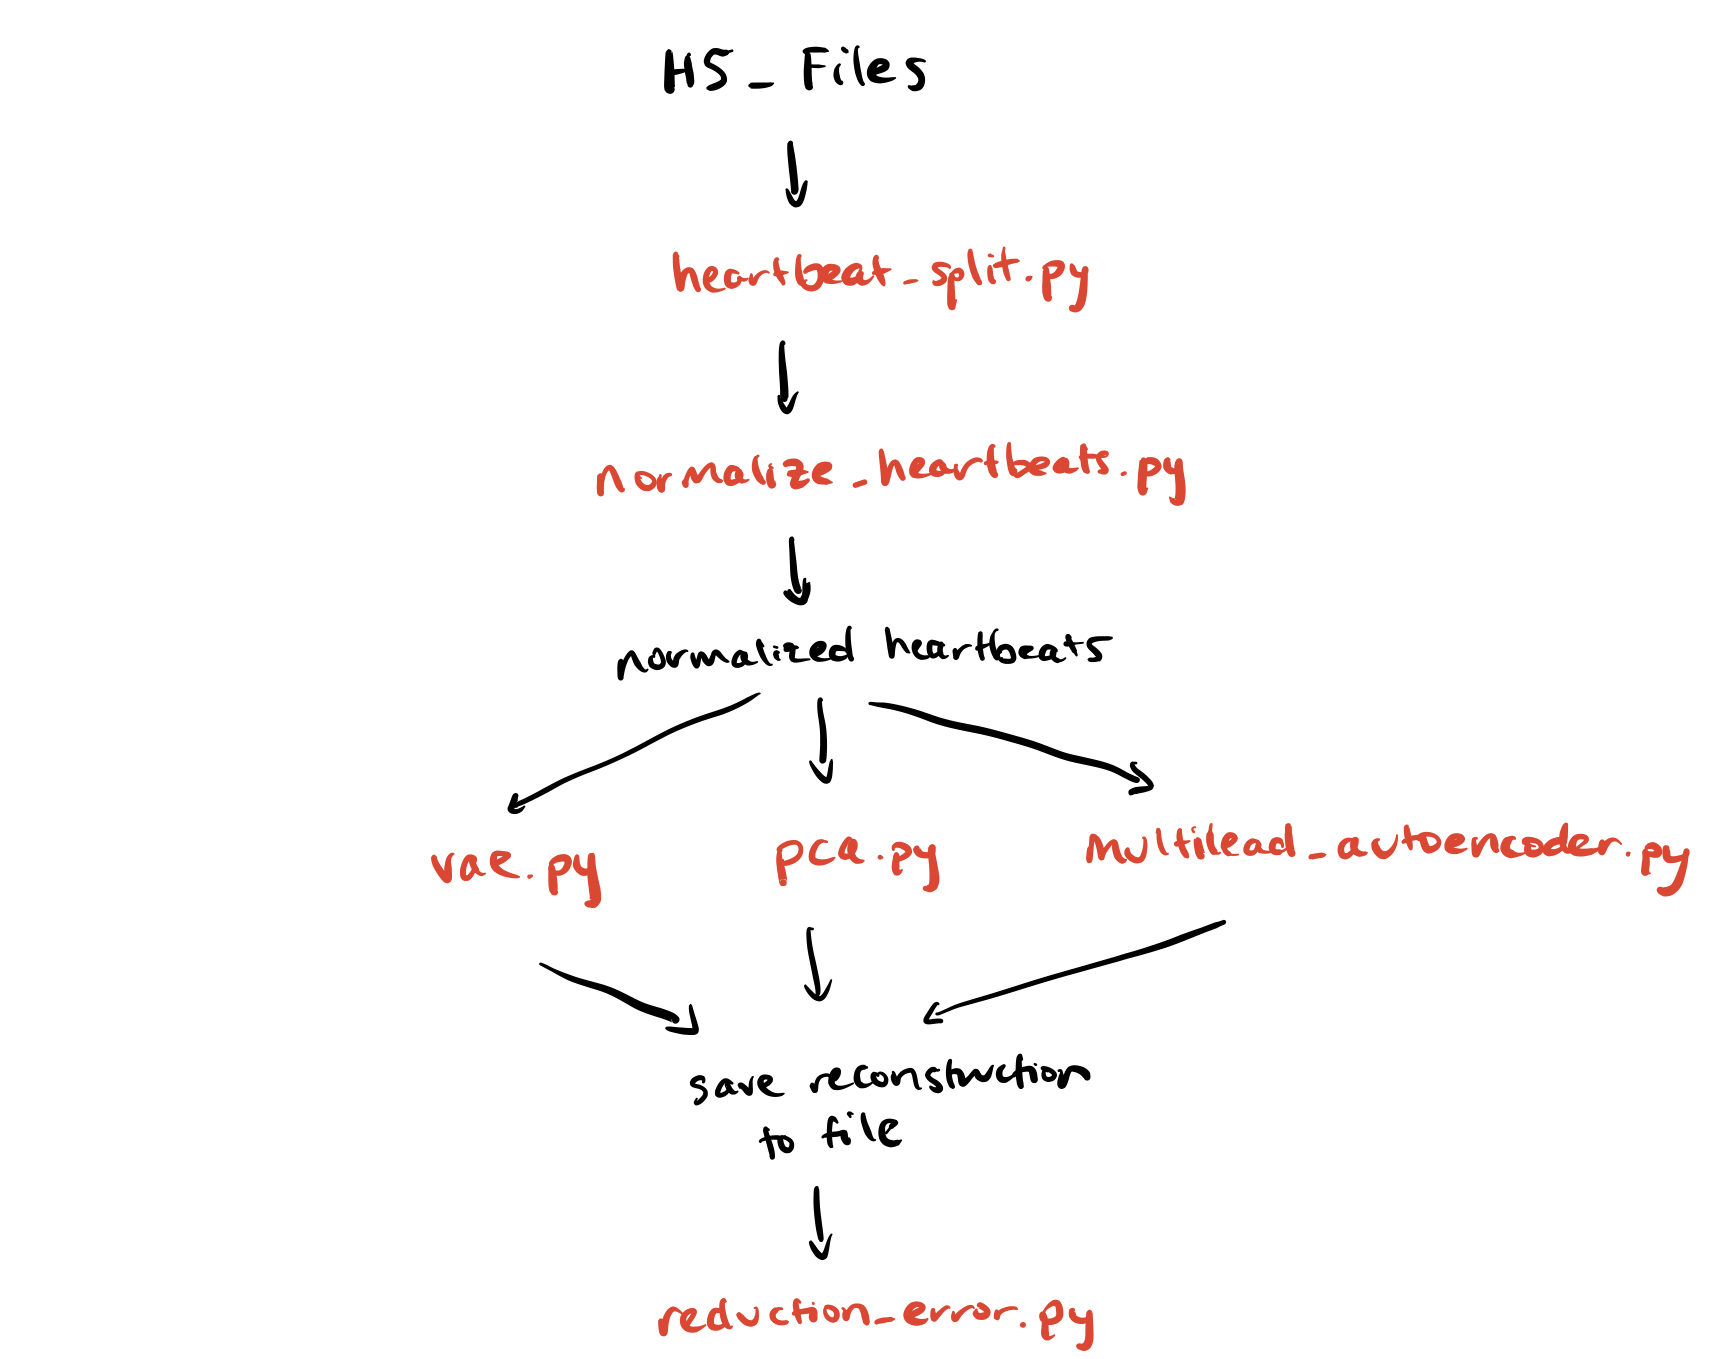 H5_Files
heartbeat_split.py
normalize_heartbeats.py
normalized heartbeats
vae.py
pca.py
multilead_autoencoder.py
save reconstruction
to file
reduction_error.py